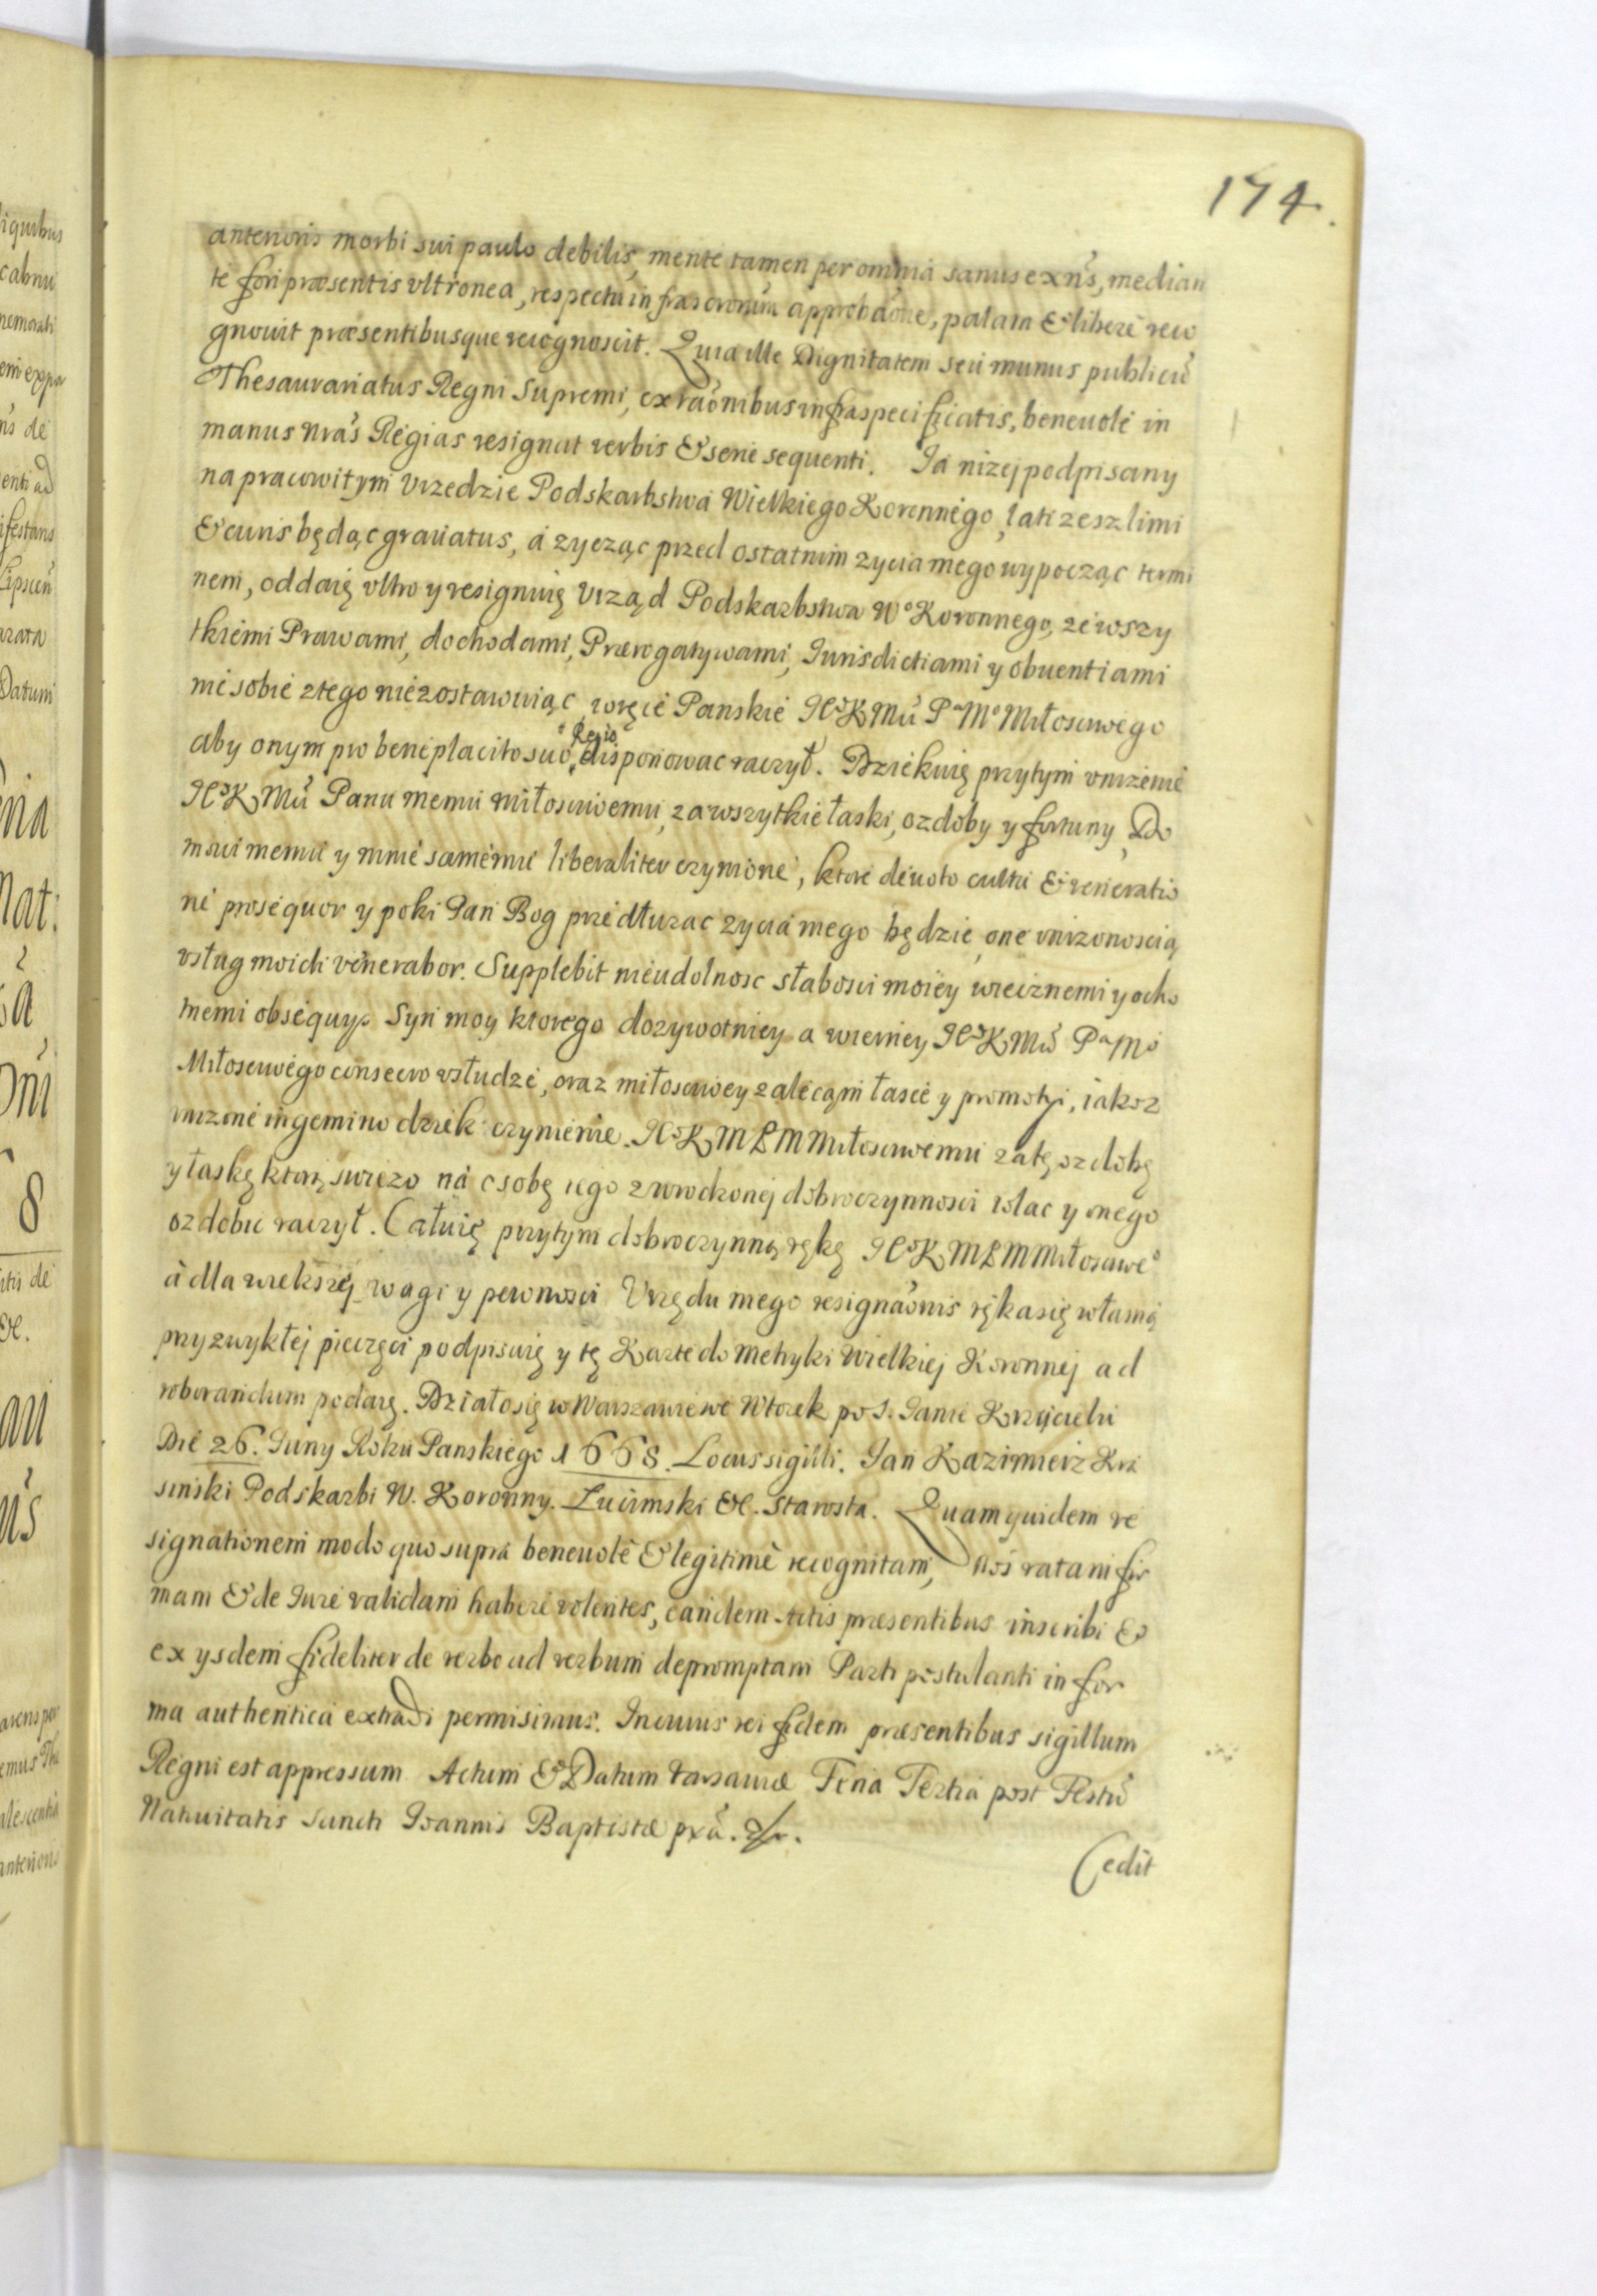 174.
anterioris morbi sui paulo debilis, mente tamen per omnia sanus exns, median
te fori præsentis vltronea, respectu infrascrorum approbaone, palam & libere reco
gnouit præsentibusque recognoscit. Quia ille Dignitatem seu munus publicu
Thesaurariatus Regni Supremi, ex raonibus infraspecificatis, beneuole in
manus nras Regias resignat verbis & serie sequenti. Ia nizej podpisany
na pracowitym Vrzedzie Podskarbstwa Wielkiego Koronnego, laty zeszlimi
& curis będąc grauatus, a zycząc przed ostatnim zycia mego wypocząc termi
nem, oddaię vltro y resignuię Vrząd Podskarbstwa Wº Koronnego, ze wszy
tkiemi Prawami, dochodami, Prærogatywami, Iurisdictiami y obuentiami
nic sobie z tego nie zostawuiąc, w ręcie Panskie IºKMci Pª Mº Miłosciwego
aby onym pro beneplacito suo Regio disponowac raczył. Dziekuię przytym vnizenie
IºKMci Panu memu miłosciwemu, za wszytkie łaski, ozdoby y fortuny, Do
mowi memu y mnie samemu liberaliter czynione, ktore deuoto cultu & veneratio
ne prosequor y poki Pan Bog przedłuzac zycia mego będzie, one vnizonoscią
vsług moich venerabor. Supplebit nieudolnosc słabosci moiey wiecznemi y ocho
tnemi obsequys Syn moy ktorego dozywotniey a wierney IºKMci Pª Mº
Miłosciwego consecro vsłudze, oraz miłosciwey zalecam łasce y promotyi, iakoz
vnizone ingemino dziekczynienie IºKMPM Miłosciwemu za tę ozdobę
y łaskę ktorą swiezo na osobę iego z wrodzonej dobroczynnosci wlac y onego
ozdobic raczył. Całuię przytym dobroczynną rękę IºKMPM Miłosciweº
a dla wiekszej wagi y pewnosci Vrzędu mego resignaonis ręka się własną
przy zwykłej pieczęci podpisuię y tę Karte do Metryki Wielkiej Koronnej ad
roborandum podaię. Działo się w Warszawie we Wtorek po S. Janie Krzcicielu
Die 26. Juny Roku Panskiego 1668. Locus sigilli. Jan Kazimierz Kra
sinski Podskarbi W. Koronny. Łucimski &c. Starosta. Quam quidem re
signationem modo quo supra beneuole & legitime recognitam, Nos ratam fir
mam & de Iure validam habere volentes, eandem Actis præsentibus inscribi &
ex ysdem fideliter de verbo ad verbum depromptam Parti postulanti in for
ma authentica extradi permisimus. In cuius rei fidem præsentibus sigillum
Regni est appressum. Actum & Datum Varsauiæ Feria Tertia post Festu
Natiuitatis Sancti Ioannis Baptistæ pxa. &c.
Cedit